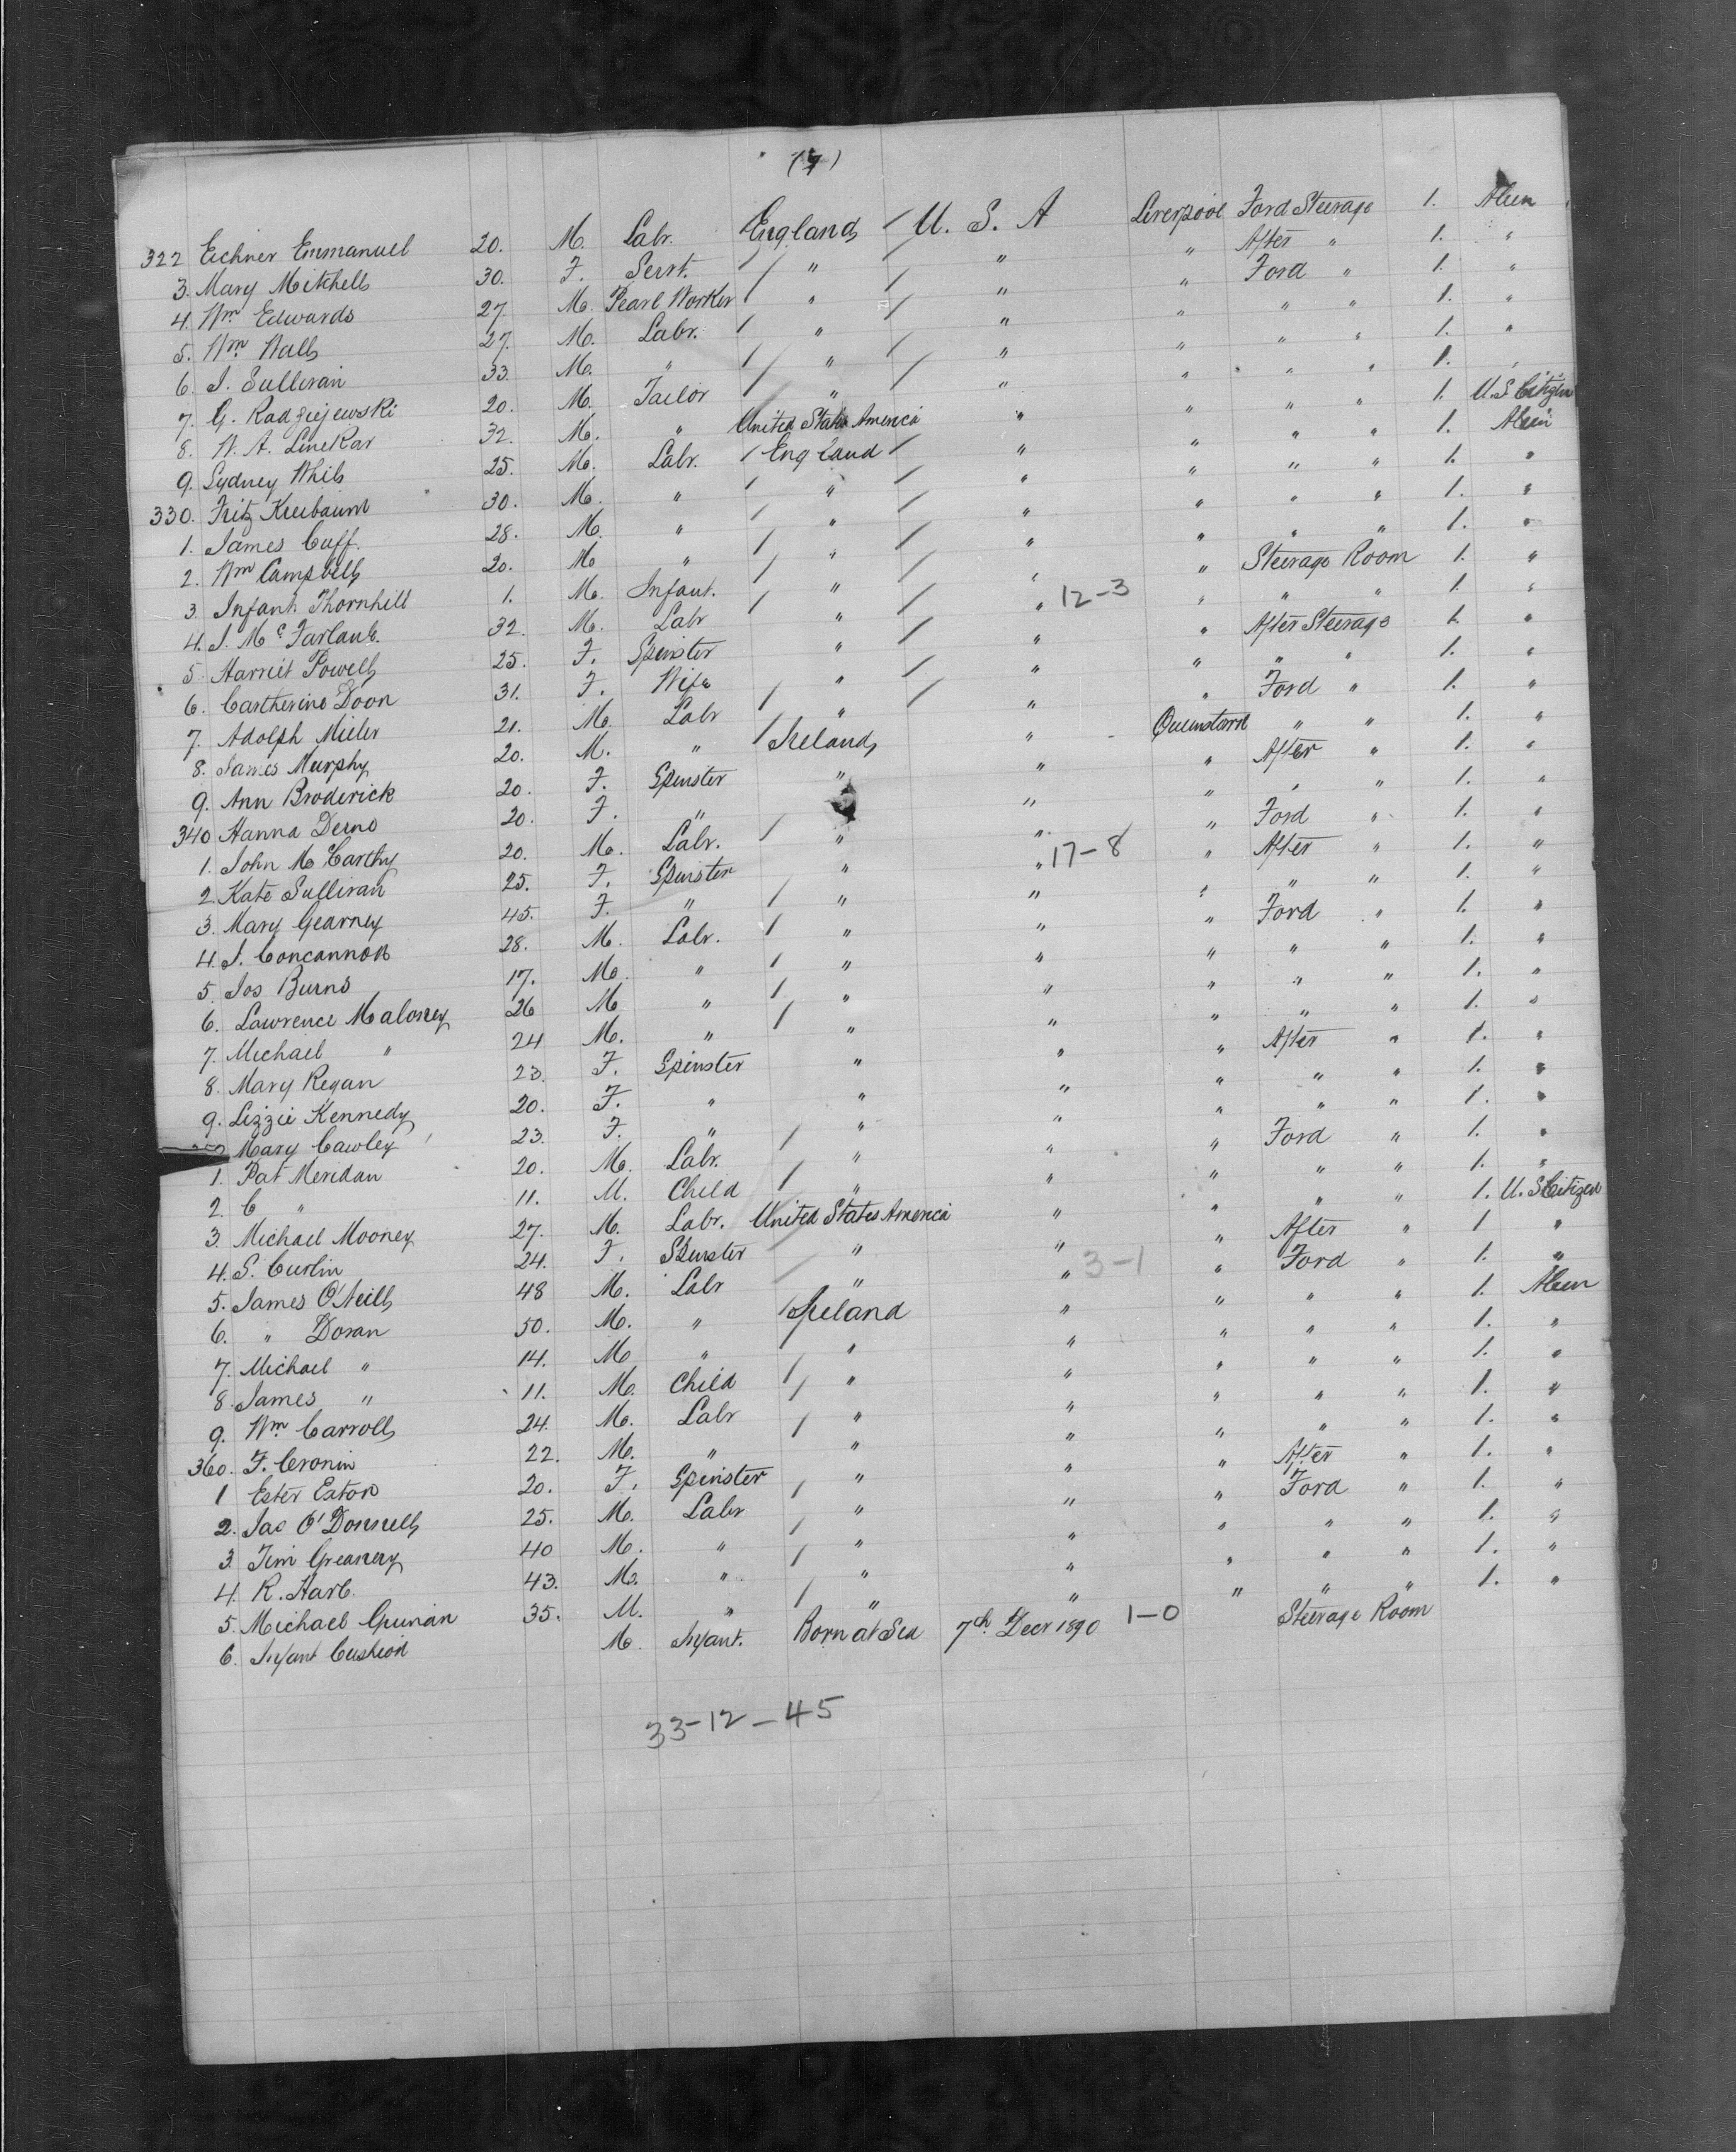 (7)
322 Eichner Emmanuel 20. M. Labr. England / U. S. A Liverpool Ford Steerage 1. Alien
3. Mary Mitchell 30. F. Servt. / " / " " After " 1. "
4. Wm Edwards 27. M. Pearl Worker / " / " " Ford " 1. "
5. Wm Wall 27. M. Labr. / " / " " " " 1. "
6. J. Sullivan 33. M. " / " / " " " " 1. "
7. G. Radziejewski 20. M. Tailor / " / " " " " 1. "
8. W. A. Linekar 32. M. " United States America " " " " 1. U.S Citizen
9. Sydney Whib 25. M. Labr. / England / " " " " 1. Alien
330. Fritz Kreibaum 30. M. " / " / " " " " 1. "
1. James Cuff. 28. M. " / " / " " " " 1. "
2. Wm Campbell 20. M " / " / " " " " 1. "
3. Infant Thornhill 1. M. Infant. / " / " " Steerage Room 1. "
4. J. McFarlane. 32. M. Labr / " / " 12-3 " " " 1. "
5. Harriet Powell 25. F. Spinster " / " " After Steerage 1. "
6. Cartherine Doon 31. F. Wife " / " " " " 1. "
7. Adolph Mieler 21. M. Labr / " / " " Ford " 1. "
8. James Murphy 20. M. " / Ireland " Queenstown " " 1. "
9. Ann Broderick 20. F. Spinster " " " After " 1. "
340 Hanna Deno 20. F. " " " " " 1. "
1. John McCarthy 20. M. Labr. / " " " Ford " 1. "
2. Kate Sullivan 25. F. Spinster " " 17-8 " After " 1. "
3. Mary Gearney 45. F. " / " " " " " 1. "
4. J. Concannon 28. M. Labr. / " " " Ford " 1. "
5. Jos Burns 17. M. " / " " " " " 1. "
6. Lawrence Maloney 26 M " / " " " " " 1. "
7. Michael " 24 M. " / " " " " " 1. "
8. Mary Regan 23. F. Spinster " " " After " 1. "
9. Lizzie Kennedy 20. F. " " " " " " 1. "
Mary Cawley 23. F. " " " " " " 1. "
1. Pat Meridan 20. M. Labr. / " " " Ford " 1. "
2. C " 11. M. Child / " " " " " 1. "
3. Michael Mooney 27. M. Labr. United States America " " " " 1. U. S Citizen
4. S. Curlin 24. F. Spinster / " " " After " 1 "
5. James O'Neill 48 M. Labr / " " 3-1 " Ford " 1. "
6. " Doran 50. M. " / Ireland " " " " 1. Alien
7. Michael " 14. M " / " " " " " 1. "
8. James " 11. M. Child / " " " " " 1. "
9. Wm Carroll 24. M. Labr / " " " " " 1. "
360. F. Cronin 22. M. " / " " " " " 1. "
1 Ester Eaton 20. F. Spinster " " " After " 1. "
2. Jas O'Donnell 25. M. Labr / " " " Ford " 1. "
3. Tim Greaney 40 M. " / " " " " " 1. "
4. R. Hart. 43. M. " / " " " " " 1. "
5. Michael Guinan 35. M. " / " " " " " 1. "
6. Infant Cushion M. Infant. Born at Sea 7th Decr 1890 1-0 Steerage Room
33-12-45